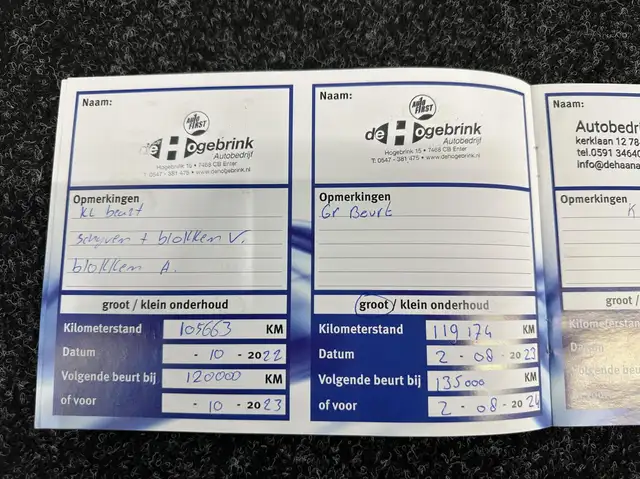 Naam:
AUTO FIRST
de Hogebrink
Autobedrijf
Hogebrink 15 • 7468 CB Enter
T: 0547 - 381 475 • www.dehogebrink.nl
Opmerkingen
KL beurt
schijven + blokken V.
blokken A.
groot / klein onderhoud
Kilometerstand 105663 KM
Datum - 10 - 2022
Volgende beurt bij 120000 KM
of voor - 10 - 2023
Naam:
AUTO FIRST
de Hogebrink
Autobedrijf
Hogebrink 15 • 7468 CB Enter
T: 0547 - 381 475 • www.dehogebrink.nl
Opmerkingen
Gr Beurt
groot / klein onderhoud
Kilometerstand 119174 KM
Datum 2 - 08 - 2023
Volgende beurt bij 135000 KM
of voor 2 - 08 - 2024
Naam:
Autobedrij
kerklaan 12 78
tel.0591 34640
info@dehaana
Opmerkingen
K
groot /
Kilometerstand
Datum
Volgende beurt bij
of voor